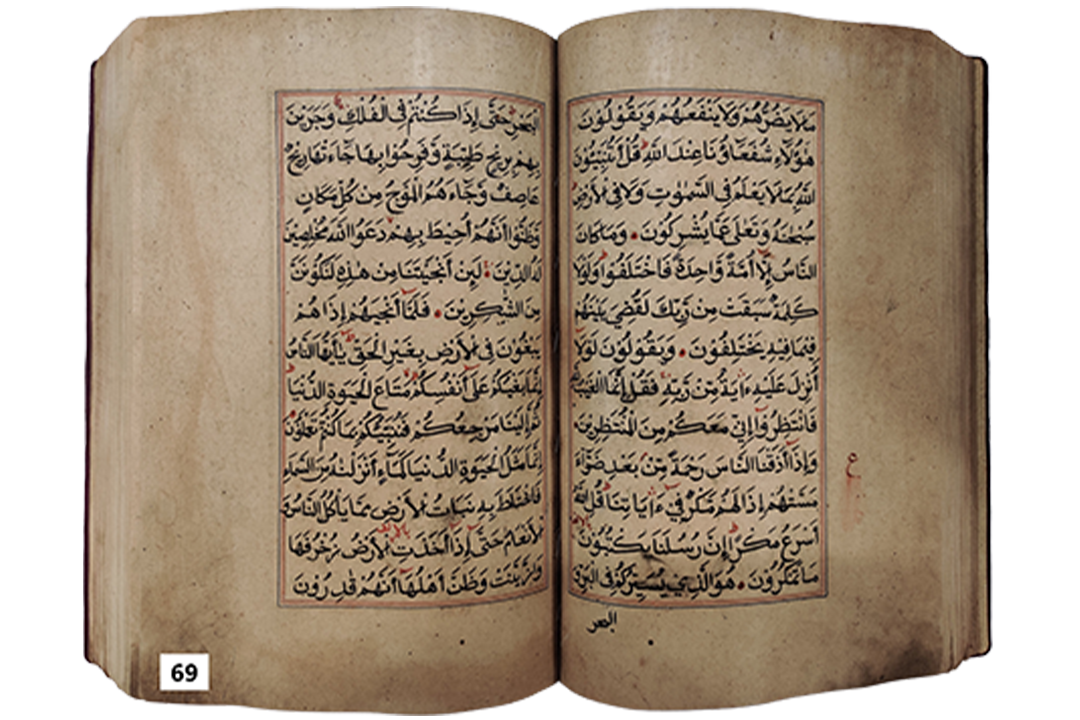 مَا لَا يَضُرُّهُمْ وَلَا يَنْفَعُهُمْ وَيَقُوْلُوْنَ
هٰؤُلَاءِ شُفَعَاؤُنَا عِنْدَ اللّٰهِ قُلْ أَتُنَبِّئُوْنَ
اللّٰهَ بِمَا لَا يَعْلَمُ فِى السَّمٰوٰتِ وَلَا فِى الْأَرْضِ
سُبْحٰنَهُ وَتَعٰلَى عَمَّا يُشْرِكُوْنَ وَمَا كَانَ
النَّاسُ إِلَّا أُمَّةً وَّاحِدَةً فَاخْتَلَفُوْا وَلَوْلَا
كَلِمَةٌ سَبَقَتْ مِنْ رَّبِّكَ لَقُضِيَ بَيْنَهُمْ
فِيْمَا فِيْهِ يَخْتَلِفُوْنَ وَيَقُوْلُوْنَ لَوْلَا
أُنْزِلَ عَلَيْهِ ءَايَةٌ مِّنْ رَّبِّهِ فَقُلْ إِنَّمَا الْغَيْبُ
فَانْتَظِرُوْا إِنِّيْ مَعَكُمْ مِنَ الْمُنْتَظِرِيْنَ
وَإِذَا أَذَقْنَا النَّاسَ رَحْمَةً مِّنْ بَعْدِ ضَرَّاءَ
ع
مَسَّتْهُمْ إِذَا لَهُمْ مَّكْرٌ فِيْ ءَايَاتِنَا قُلِ اللّٰهُ
أَسْرَعُ مَكْرًا إِنَّ رُسُلَنَا يَكْتُبُوْنَ
مَا تَمْكُرُوْنَ هُوَ الَّذِيْ يُسَيِّرُكُمْ فِى الْبَرِّ وَ
البحر
الْبَحْرِ حَتّٰى إِذَا كُنْتُمْ فِى الْفُلْكِ وَجَرَيْنَ
بِهِمْ بِرِيْحٍ طَيِّبَةٍ وَّفَرِحُوْا بِهَا جَاءَتْهَا رِيْحٌ
عَاصِفٌ وَّجَاءَهُمُ الْمَوْجُ مِنْ كُلِّ مَكَانٍ
وَظَنُّوْا أَنَّهُمْ أُحِيْطَ بِهِمْ دَعَوُا اللّٰهَ مُخْلِصِيْنَ
لَهُ الدِّيْنَ لَئِنْ أَنْجَيْتَنَا مِنْ هٰذِهِ لَنَكُوْنَنَّ
مِنَ الشّٰكِرِيْنَ فَلَمَّا أَنْجٰىهُمْ إِذَا هُمْ
يَبْغُوْنَ فِى الْأَرْضِ بِغَيْرِ الْحَقِّ يٰأَيُّهَا النَّاسُ
إِنَّمَا بَغْيُكُمْ عَلٰى أَنْفُسِكُمْ مَتَاعَ الْحَيٰوةِ الدُّنْيَا
ثُمَّ إِلَيْنَا مَرْجِعُكُمْ فَنُنَبِّئُكُمْ بِمَا كُنْتُمْ تَعْمَلُوْنَ
إِنَّمَا مَثَلُ الْحَيٰوةِ الدُّنْيَا كَمَاءٍ أَنْزَلْنٰهُ مِنَ السَّمَاءِ
فَاخْتَلَطَ بِهِ نَبَاتُ الْأَرْضِ مِمَّا يَأْكُلُ النَّاسُ وَ
الْأَنْعَامُ حَتّٰى إِذَا أَخَذَتِ الْأَرْضُ زُخْرُفَهَا
وَازَّيَّنَتْ وَظَنَّ أَهْلُهَا أَنَّهُمْ قٰدِرُوْنَ
69